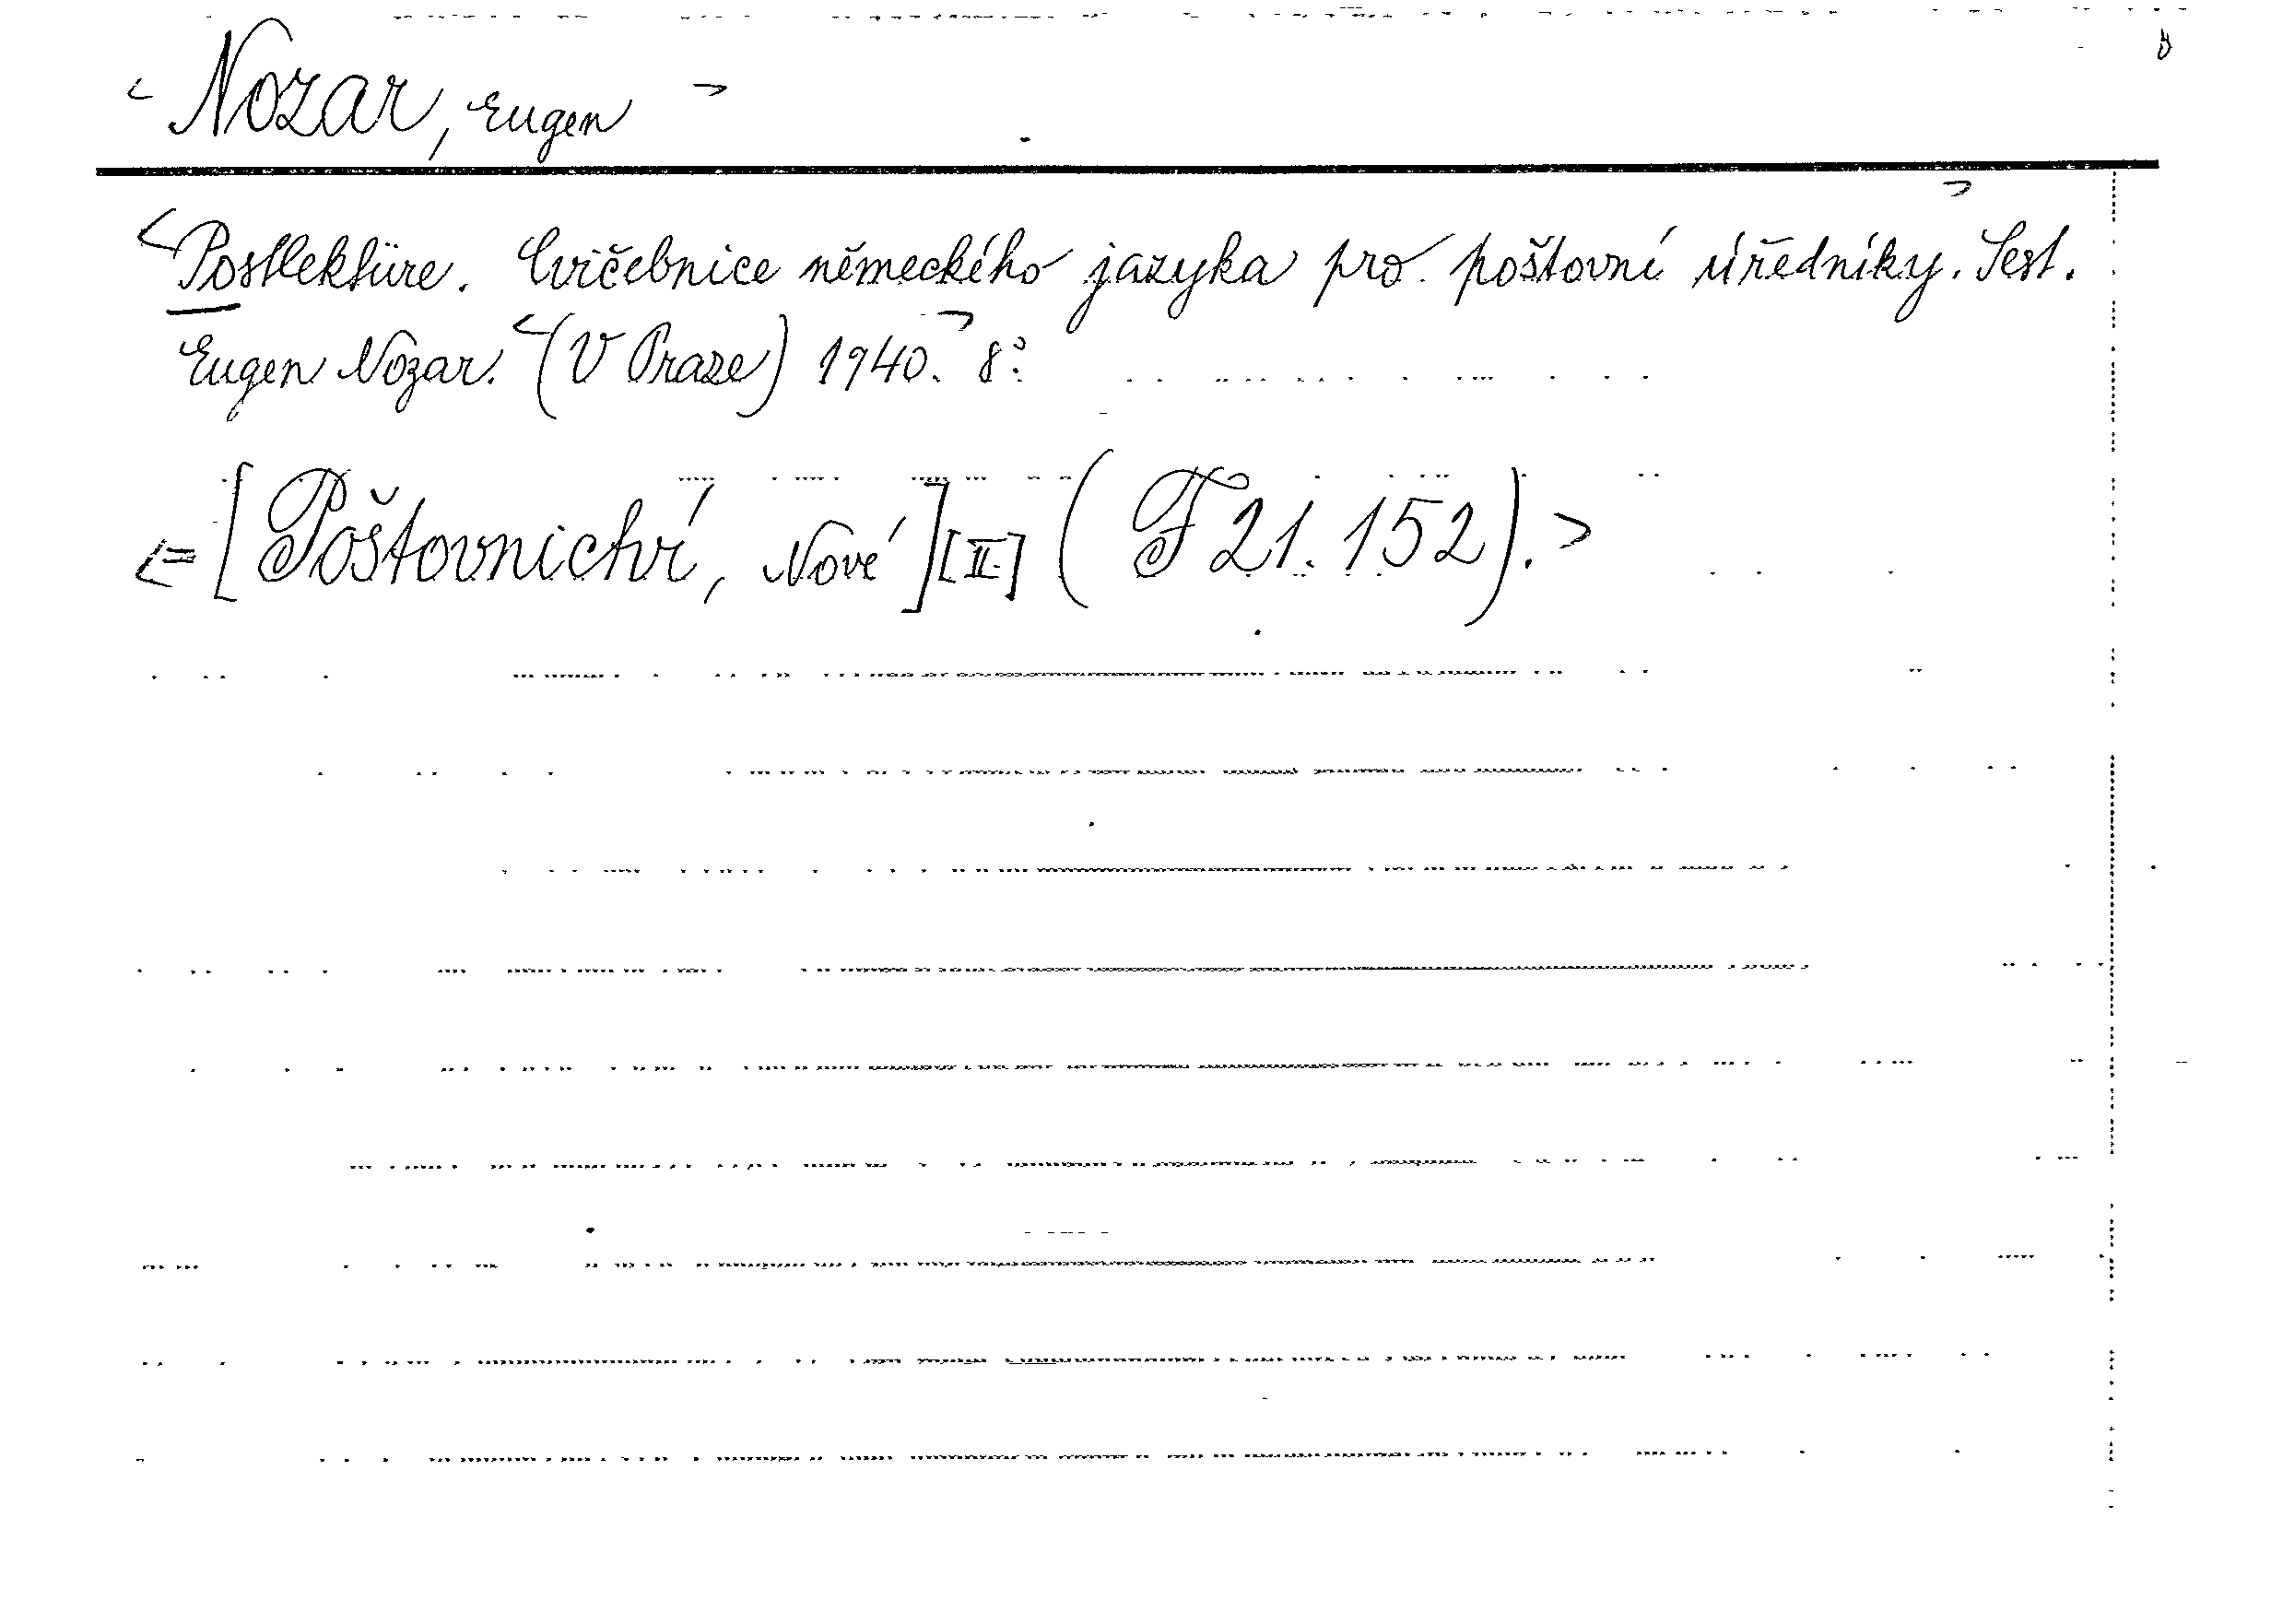 < Nozar, Eugen >
<Postlektüre. Cvičebnice německého jazyka pro poštovní úředníky.> Sest.
Eugen Nozar. <(V Praze) 1940.> 8°.
<=[Poštovnictví, Nové] [II.] (F 21.152).>